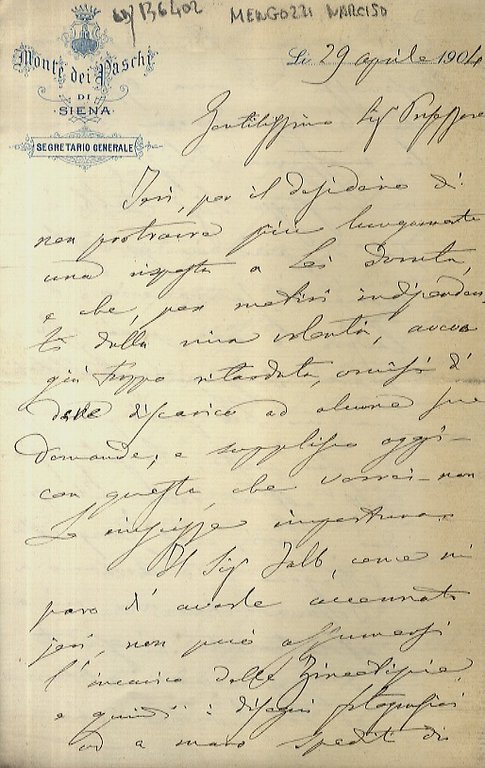 136402
MENGOZZI NARCISO
Monte dei Paschi
DI
SIENA
SEGRETARIO GENERALE
Li 29 aprile 1904
Gentilissimo Sigr Professore
Ieri, per il desiderio di
non protrarre più lungamente
una risposta a Lei dovuta,
e che, per motivi indipenden-
ti dalla mia volontà, avevo
già troppo ritardata, omisi di
dare discarico ad alcune sue
domande; e supplisco oggi
con questa, che vorrei non
Le riuscisse importuna.
Il Sigr, come mi
pare d'averle accennato
jeri, non può assumersi
l'incarico delle Zincotipie,
e quindi i disegni fotografici
od a mano spediti di